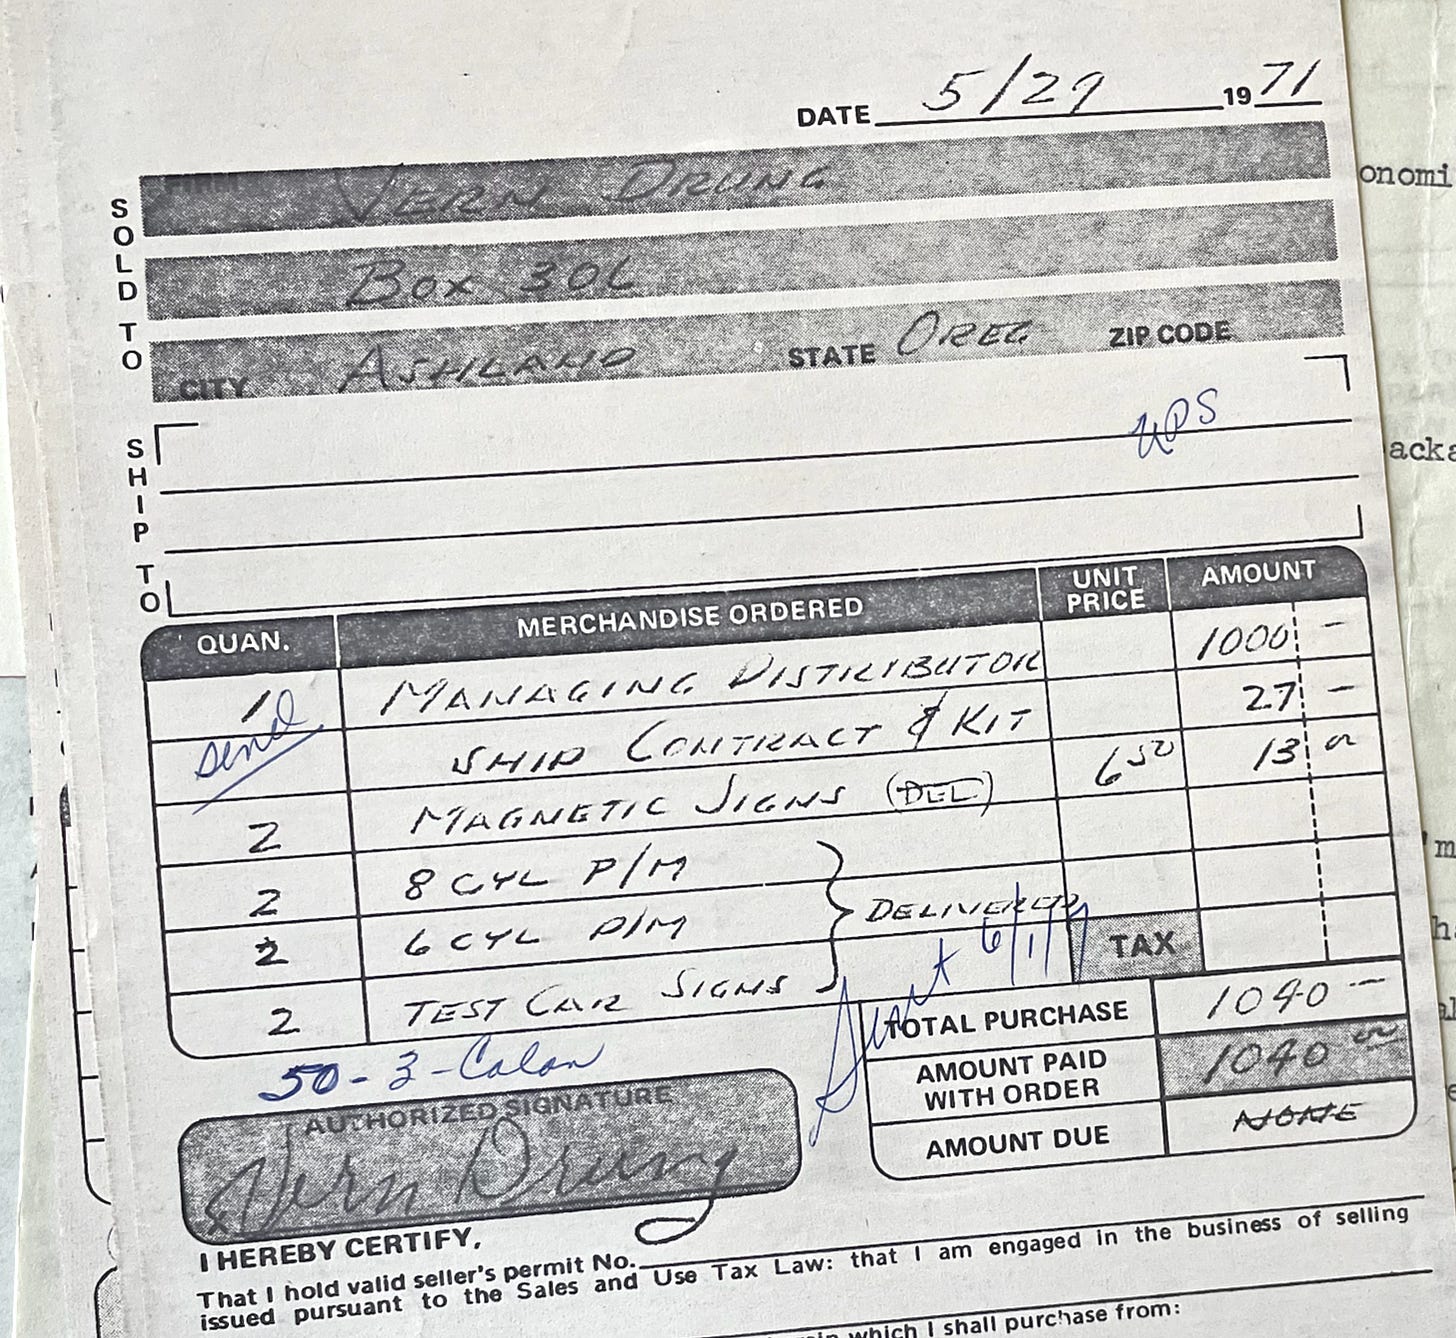 DATE 5/29 19 71
onomi
SOLD TO
FIRM VERN DRUNG
BOX 306
CITY ASHLAND STATE OREG ZIP CODE
SHIP TO
UPS
acka
QUAN. MERCHANDISE ORDERED UNIT PRICE AMOUNT
1 MANAGING DISTRIBUTOR 1000 —
send SHIP CONTRACT & KIT 27 —
2 MAGNETIC SIGNS (DEL) 6 50 13
2 8 CYL P/M
2 6 CYL P/M DELIVERED
TAX
2 TEST CAR SIGNS
TOTAL PURCHASE 1040 —
50-3-Colon
AMOUNT PAID WITH ORDER 1040
AMOUNT DUE NONE
AUTHORIZED SIGNATURE
Vern Drung
I HEREBY CERTIFY,
That I hold valid seller's permit No.
issued pursuant to the Sales and Use Tax Law: that I am engaged in the business of selling
which I shall purchase from: